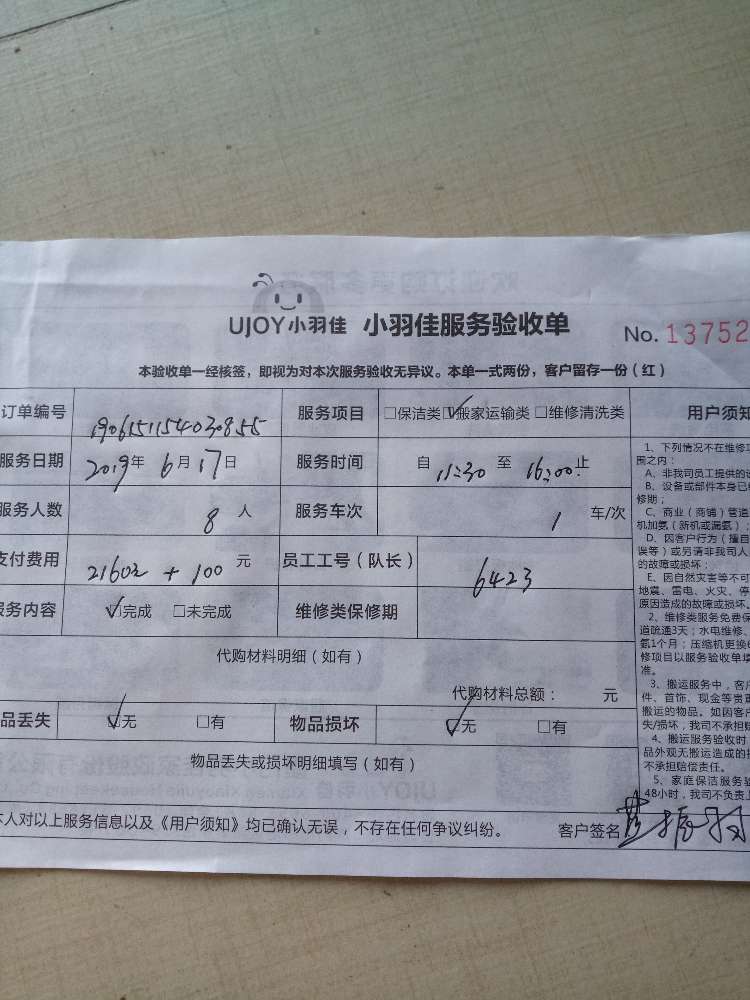 UJOY小羽佳 小羽佳服务验收单 No. 13752
本验收单一经核签，即视为对本次服务验收无异议。本单一式两份，客户留存一份（红）
订单编号 1906151154030855 服务项目 □保洁类 ☑搬家运输类 □维修清洗类 用户须知
服务日期 2019年 6月17日 服务时间 自 11:30 至 16:00止
服务人数 8 人 服务车次 1 车/次
支付费用 2160元 + 100 元 员工工号（队长） 6423
服务内容 ☑完成 □未完成 维修类保修期
代购材料明细（如有）
代购材料总额： 元
品丢失 ☑无 □有 物品损坏 ☑无 □有
物品丢失或损坏明细填写（如有）
本人对以上服务信息以及《用户须知》均已确认无误，不存在任何争议纠纷。 客户签名
1、下列情况不在维修
围之内：
A、非我司员工提供的
B、设备或部件本身已
修期；
C、商业（商铺）管道
机加氨（新机或漏氨）
D、因客户行为（擅自
误等）或另请非我司人
的故障或损坏；
E、因自然灾害等不可
地震、雷电、火灾、停
原因造成的故障或损坏。
2、维修类服务免费保
道疏通3天；水电维修、
氨1个月；压缩机更换
修项目以服务验收单
准。
3、搬运服务中，客
件、首饰、现金等贵
搬运的物品。如因客
失/损坏，我司不承担
4、搬运服务验收时
品外观无搬运造成的
不承担赔偿责任。
5、家庭保洁服务
48小时，我司不负责